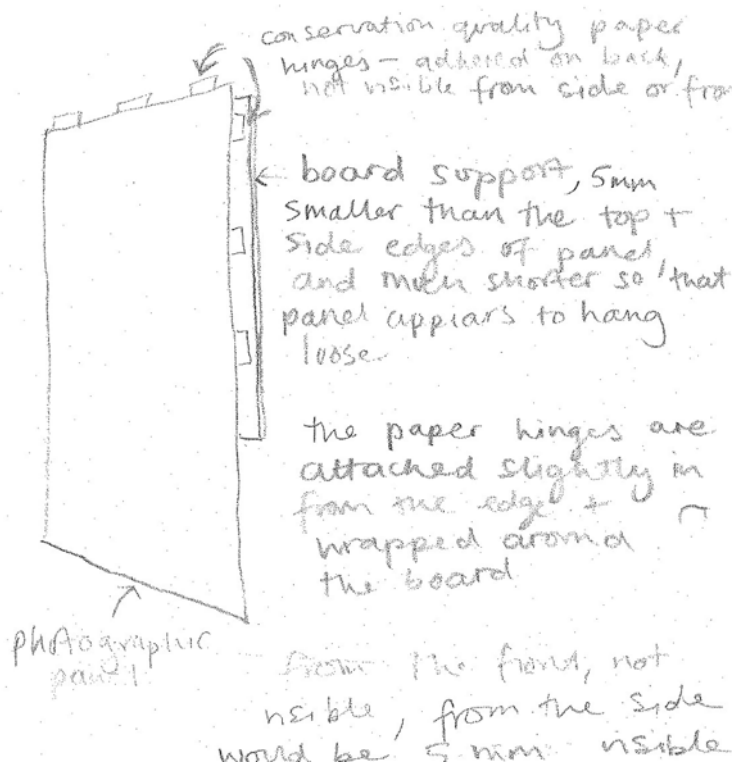 conservation quality paper
hinges – adhered on back,
not visible from side or fron
board support, 5mm
smaller than the top +
side edges of panel,
and much shorter so that
panel appears to hang
loose.
the paper hinges are
attached slightly in
from the edge +
wrapped around
the board
photographic
panel
from the front, not
visible, from the side
would be 5 mm visible